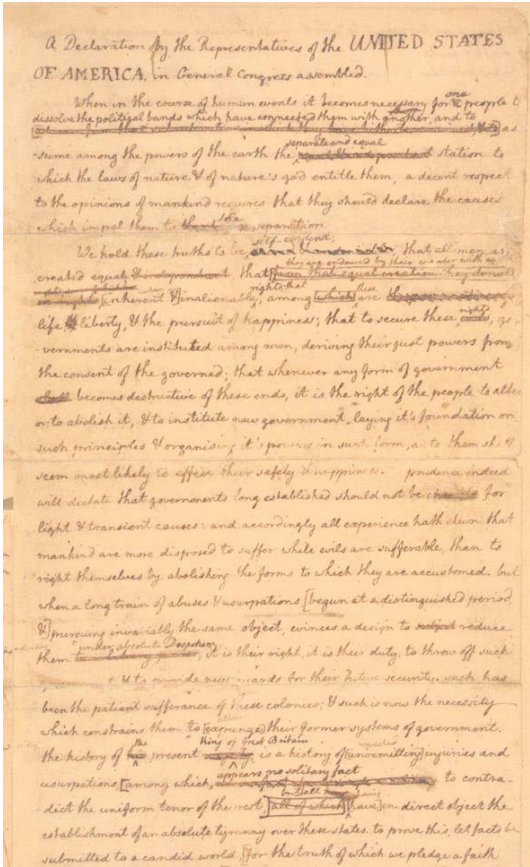 A Declaration by the Representatives of the UNITED STATES
OF AMERICA, in General Congress assembled.
When in the course of human events it becomes necessary for one people to
dissolve the political bands which have connected them with another, and to
as-
separate and equal
-sume among the powers of the earth the station to
which the laws of nature & of nature's god entitle them, a decent respect
to the opinions of mankind requires that they should declare the causes
which impel them to the separation.
self-evident,
We hold these truths to be that all men are
they are endowed by their creator with
created equal & independent; that from that equal creation they derive
rights; that these
inherent & inalienable, among which are
rights
life, & liberty, & the pursuit of happiness; that to secure these ends, go-
-vernments are instituted among men, deriving their just powers from
the consent of the governed; that whenever any form of government
shall becomes destructive of these ends, it is the right of the people to alter
or to abolish it, & to institute new government, laying it's foundation on
such principles & organising it's powers in such form, as to them shall
seem most likely to effect their safety & happiness. prudence indeed
will dictate that governments long established should not be changed for
light & transient causes: and accordingly all experience hath shewn that
mankind are more disposed to suffer while evils are sufferable, than to
right themselves by abolishing the forms to which they are accustomed. but
when a long train of abuses & usurpations [begun at a distinguished period
&] pursuing invariably the same object, evinces a design to subject reduce
under absolute Despotism
them it is their right, it is their duty, to throw off such
& to provide new guards for their future security. such has
been the patient sufferance of these colonies; & such is now the necessity
alter
which constrains them to [expunge] their former systems of government.
the King of Great Britain repeated
the history of his present is a history of [unremitting] injuries and
appears no solitary fact
usurpations, [among which, to contra-
but all having
-dict the uniform tenor of the rest, [all of which] have in direct object the
establishment of an absolute tyranny over these states. to prove this, let facts be
submitted to a candid world, [for the truth of which we pledge a faith